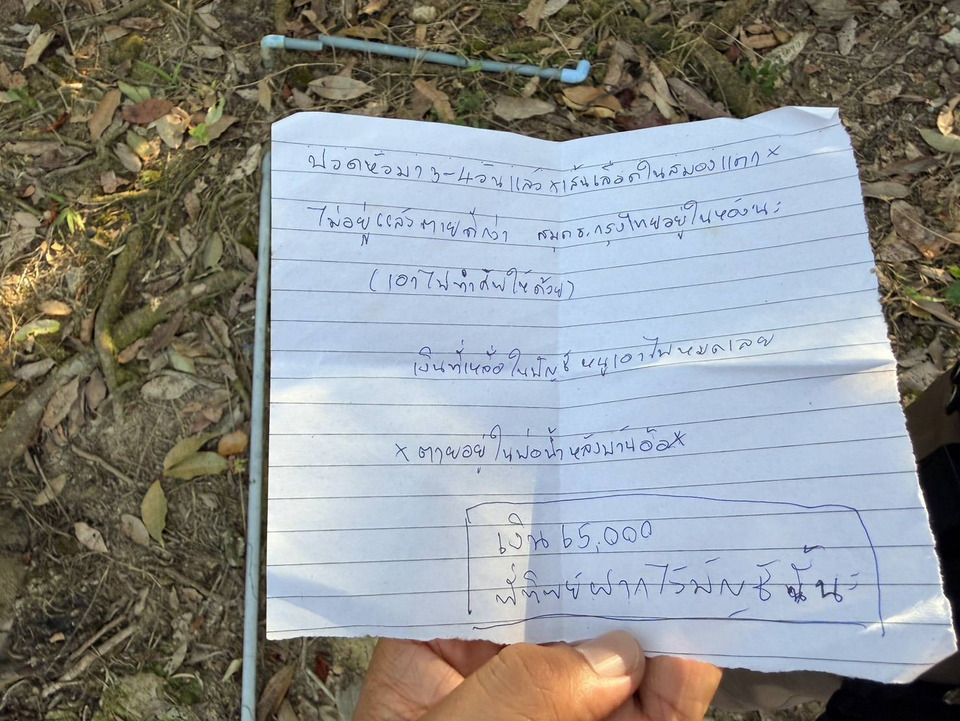 ปวดหัวมา 3-4 วันแล้ว x เส้นเลือดในสมองแตก x
ไม่อยู่แล้วตายดีกว่า สมุดธ.กรุงไทยอยู่ในห้องนะ
(เอาไปทำศพให้ด้วย)
เงินที่เหลือในบัญชี หนูเอาไปหมดเลย
x ตายอยู่ในบ่อน้ำหลังบ้าน x
เงิน 65,000
พี่ทิพย์ฝากไว้บัญชีนี้นะ